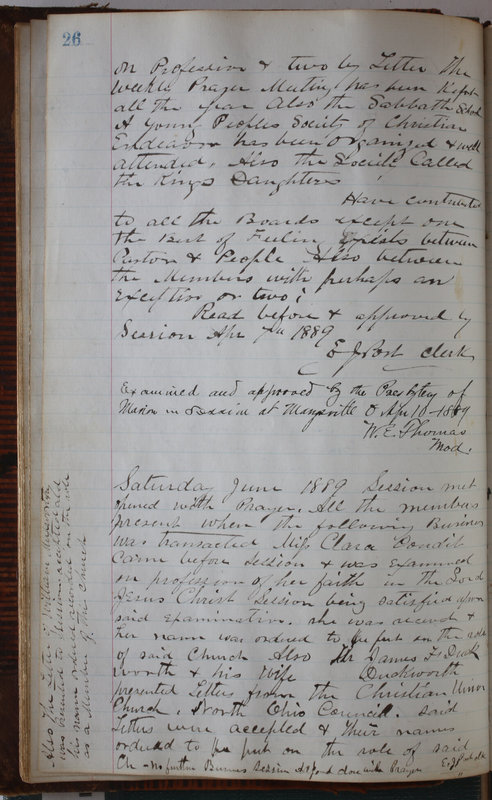 26
on Profession & two by Letter The
Weekly Prayer Meeting has been kept
all the year Also the Sabbath School
A Young Peoples Society of Christian
Endeavor has been Organized & well
attended, Also the Society Called
the Kings Daughters
Have contributed
to all the Boards except one
the Best of Feelin Exists between
Pastor & People Also between
the Members with perhaps an
Exception or two;
Read before & approved by
Session Apr 7th 1889
E J Post Clerk
Examined and approved by the Presbytery of
Marion in Session at Marysville O Apr 10 - 1889
W. E. Thomas
Mod.
Saturday June 1889 Session met
opened with Prayer. All the members
present when the following Business
was transacted Miss Clara Condit
Came before Session & was examined
on profession of her faith in the Lord
Jesus Christ Session being satisfied upon
said examination. she was &
her name was ordered to be put on the role
of said Church Also Mr James F. Duck
worth & his Wife Duckworth
presented Letters from the Christian Union
Church, North Ohio Council. said
Letters were accepted & their names
ordered to be put on the role of said
Ch - no further Business Session with Prayer
Also the Letter of William
was presented to Session accepted and
his name ordered recorded on the role
as a Member of the Church